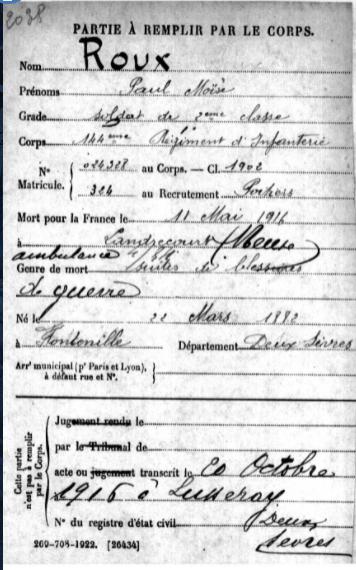 2038
PARTIE À REMPLIR PAR LE CORPS.
Nom ROUX
Prénoms Paul Moïse
Grade soldat de 2eme classe
Corps 144eme Régiment d'Infanterie
N° Matricule. { 024328 au Corps. — Cl. 1902
324 au Recrutement Poitiers
Mort pour la France le 11 Mai 1916
à Landrecourt (Meuse)
ambulance
Genre de mort Suites de blessures
de guerre
Né le 22 Mars 1882
à Fontenille Département Deux Sèvres
Arrt municipal (pr Paris et Lyon), à défaut rue et N°. }
Cette partie n'est pas à remplir par le Corps.
Jugement rendu le
par le Tribunal de
acte ou jugement transcrit le 20 Octobre
1916 à Lusseray
N° du registre d'état civil Deux
Sevres
269-708-1922. [26434]